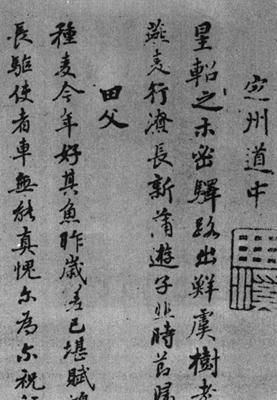 定州道中
星軺之木密驛路出鮮虞樹老
燕麦行濟長新蒲遊子悲時節歸
田父
種麦今年好其魚昨歲差已堪賦鴻
長驅使者車無能真愧尔為尔祝